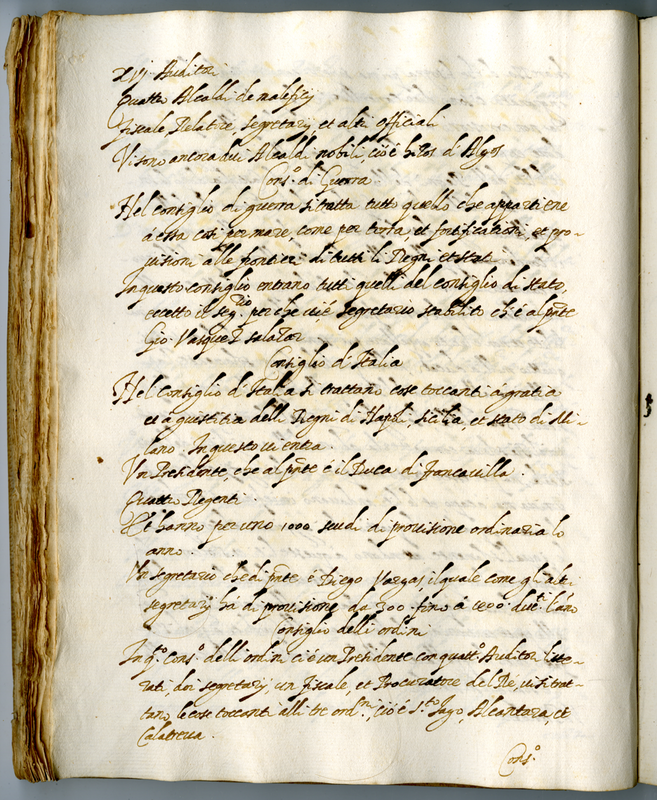 xvj Auditori
Quattro Alcaldi de malefitij
Fiscale, Relatore, segretarij, et altri officiali
Vi sono ancora dui Alcaldi nobili, cioè hijos d'Algos
Cons.º di Guerra
Nel consiglio di guerra si tratta tutto quello che appartiene
à essa così per mare, come per terra et fortificationi, et pro-
uisioni alle frontiere di tutti li Regni et stati
In questo consiglio entrano tutti quelli del consiglio di stato,
eccetto il seg.rio perche vi è segretario stabilito ch'è al pnte
Gio. Vasquez salazar
Consiglio d'Italia
Nel Consiglio d'Italia si trattano cose toccanti à gratia
et a giustitia delli Regni di Napoli Sicilia, et stato di Mi-
lano. In questo vi entra
Vn Presidente, che al pnte è il Duca di Francauilla.
Quattro Regenti
Et hanno per uno 1000 scudi di prouisione ordinaria lo
anno.
Vn segretario che di pnte è Diego Vargas il quale come gli altri
segretarij hà di prouisione da 300 fino à 1200 duc.ti l'año
Consiglio delli ordini
In q.to cons.º dell'ordini ci è un Presidente con quatt.º Auditori lite-
rati, doi segretarij un Fiscale, et Procuratore del Rè, ui si trat-
tano le cose toccanti alli tre ord.ni, cioè S.to Iago, Alcantara, et
Calatreua.
Cons.º